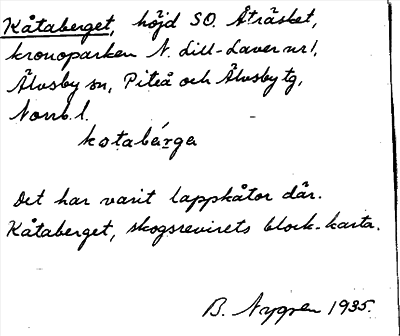 Kåtaberget, höjd SO. Åträsket,
kronoparken N. Lill-Laver nr 1,
Älvsby sn, Piteå och Älvsby tg,
Norrb. l.
kotabérga
Det har varit lappkåtor där.
Kåtaberget, skogsrevirets block-karta.
B. Nygren 1935.